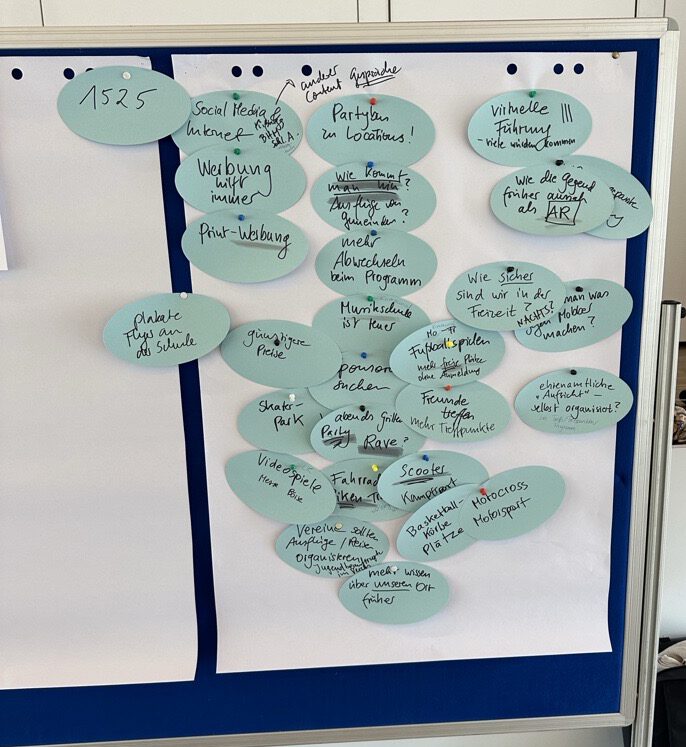 1525
anderer
content Gespräche
Social Media
Internet
Partybus
zu Locations!
virtuelle
Führung
- viele würden kommen
Werbung
hilft
immer
Wie kommt
man hin?
Ausflüge von
Gemeinden?
Wie die Gegend
früher aussah
als AR
Print-Werbung
mehr
Abwechseln
beim Programm
Wie sicher
sind wir in der
Freizeit?
NACHTS?
man was
gegen Mobber
machen?
plakate
Flyer an
der Schule
günstigere
Preise
Musikschule
ist teuer
Fußballspielen
mehr freie Plätze
ohne Anmeldung
suchen
ehrenamtliche
"Aufsicht" -
selbst organisiert?
Skater-
park
abends Grillen
Party
Rave?
Freunde
treffen
mehr Treffpunkte
Videospiele
Fahrrad
Scooter
Kampfsport
Basketball-
körbe
Plätze
Motocross
Motorsport
Vereine sollen
Ausflüge / Reisen
organisieren
mehr wissen
über unseren Ort
früher